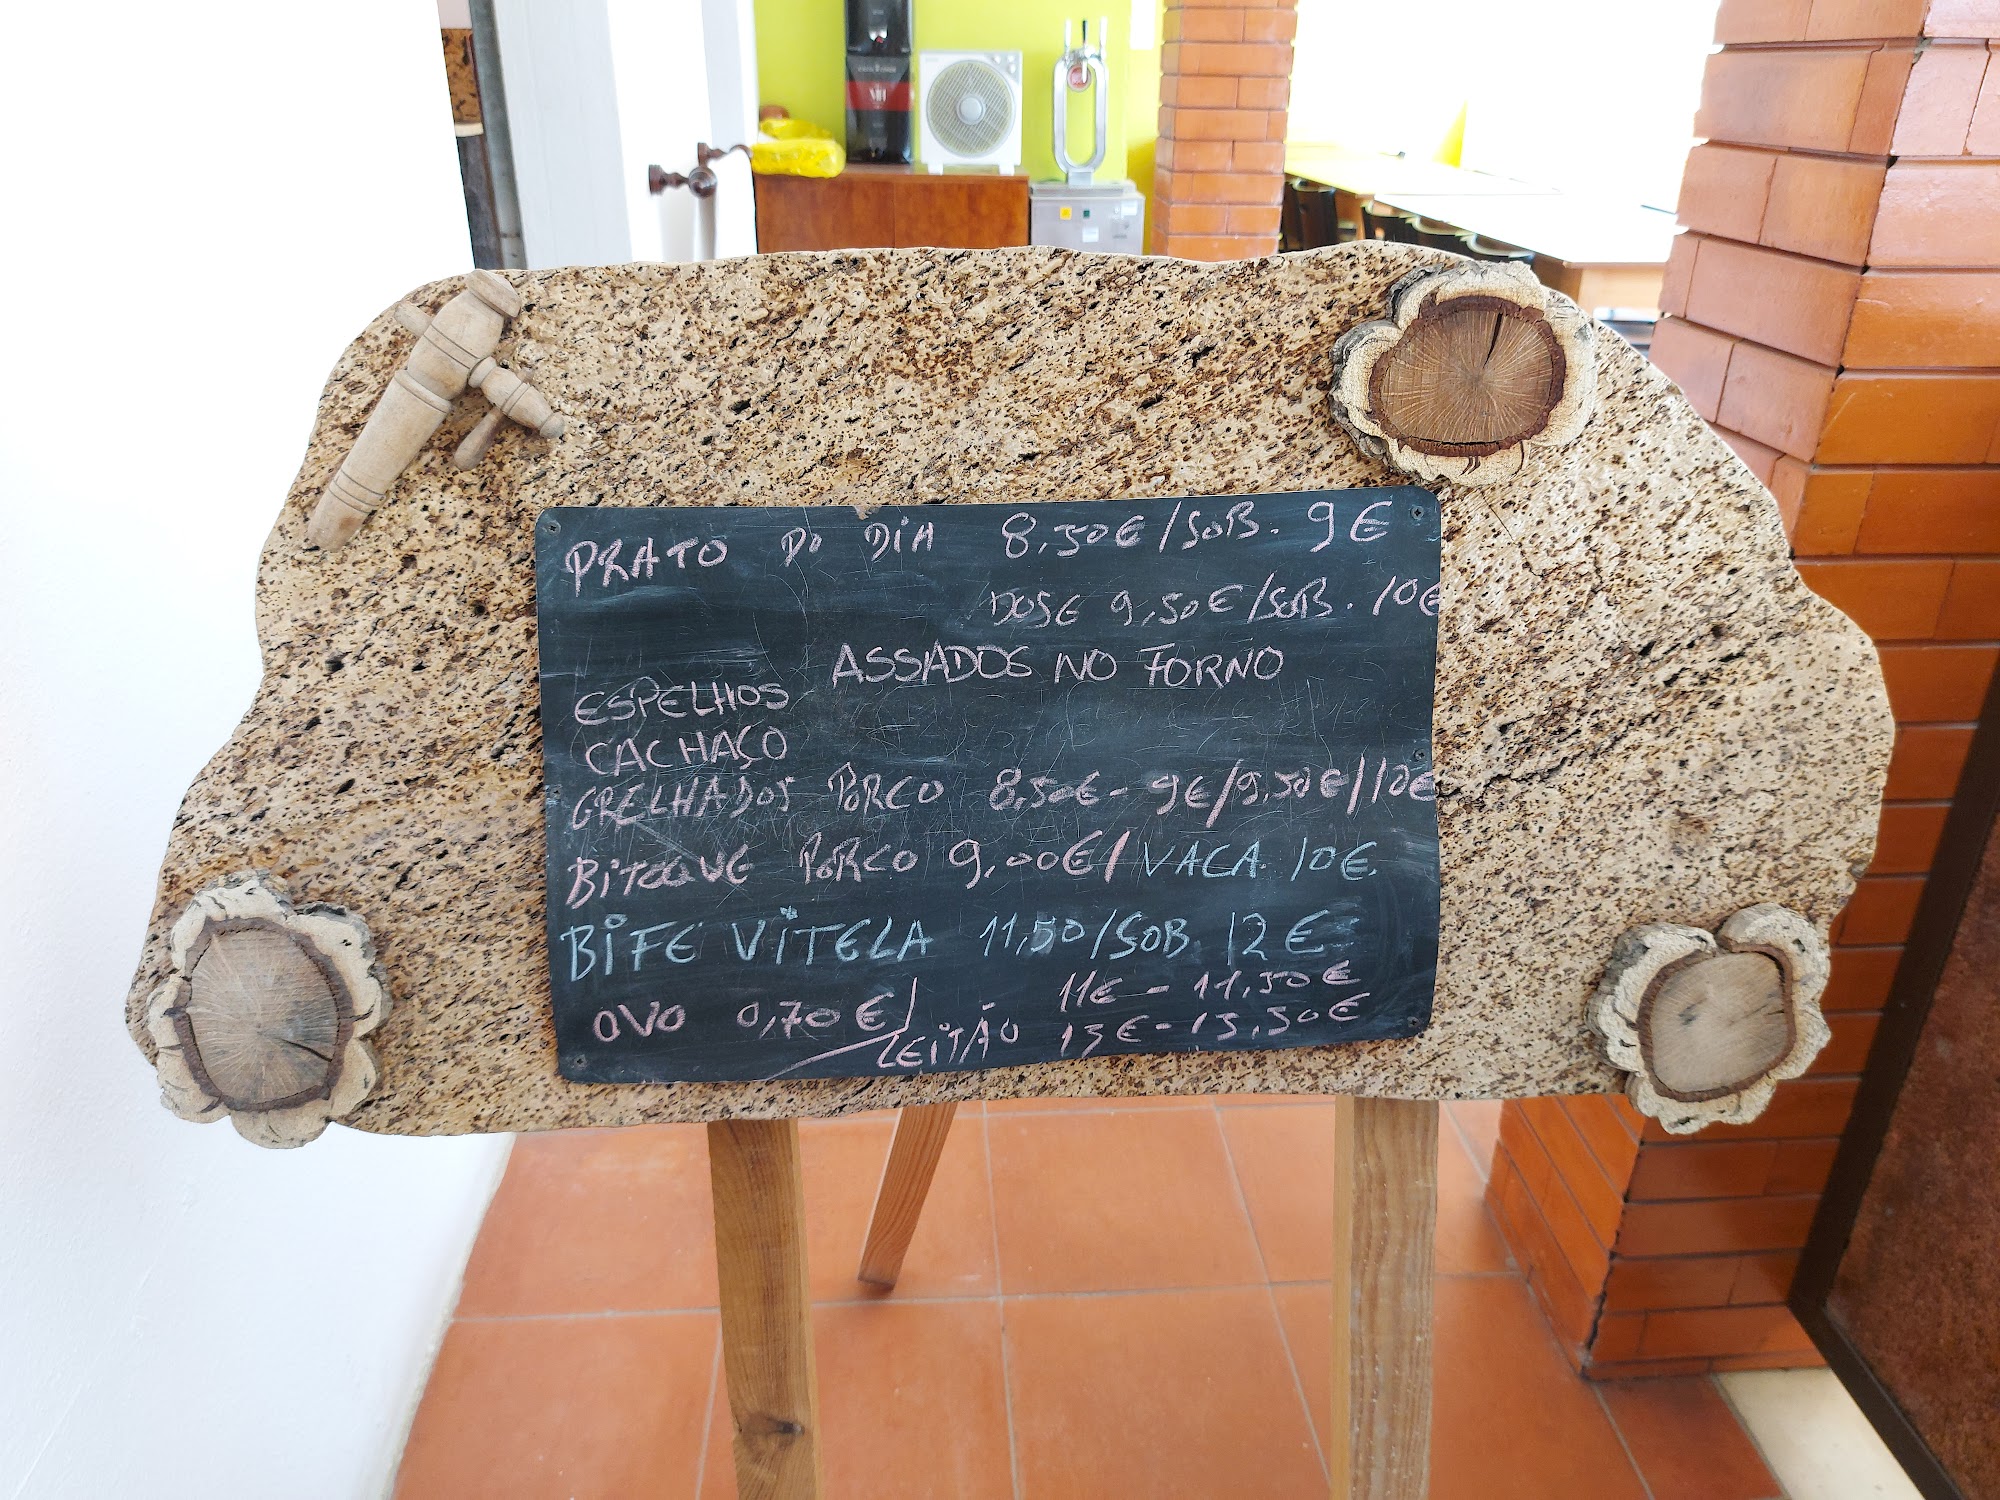 PRATO DO DIA 8,50€/SOB. 9€
DOSE 9,50€/SOB. 10€
ASSADOS NO FORNO
ESPELHOS
CACHAÇO
GRELHADOS PORCO 8,50€-9€/9,50€/10€
BITOQUE PORCO 9,00€/VACA 10€.
BIFE VITELA 11,50/SOB 12€
OVO 0,70€/
LEITÃO 11€-11,50€
13€-13,50€